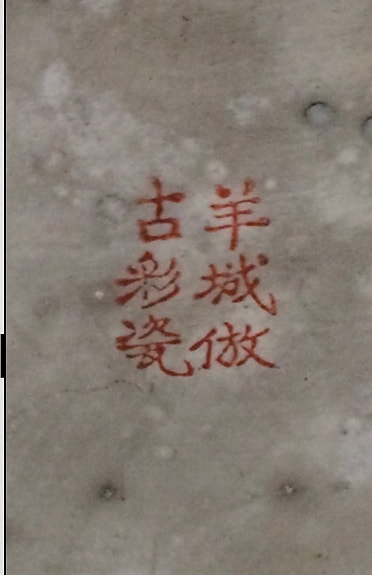 羊城倣
古彩瓷